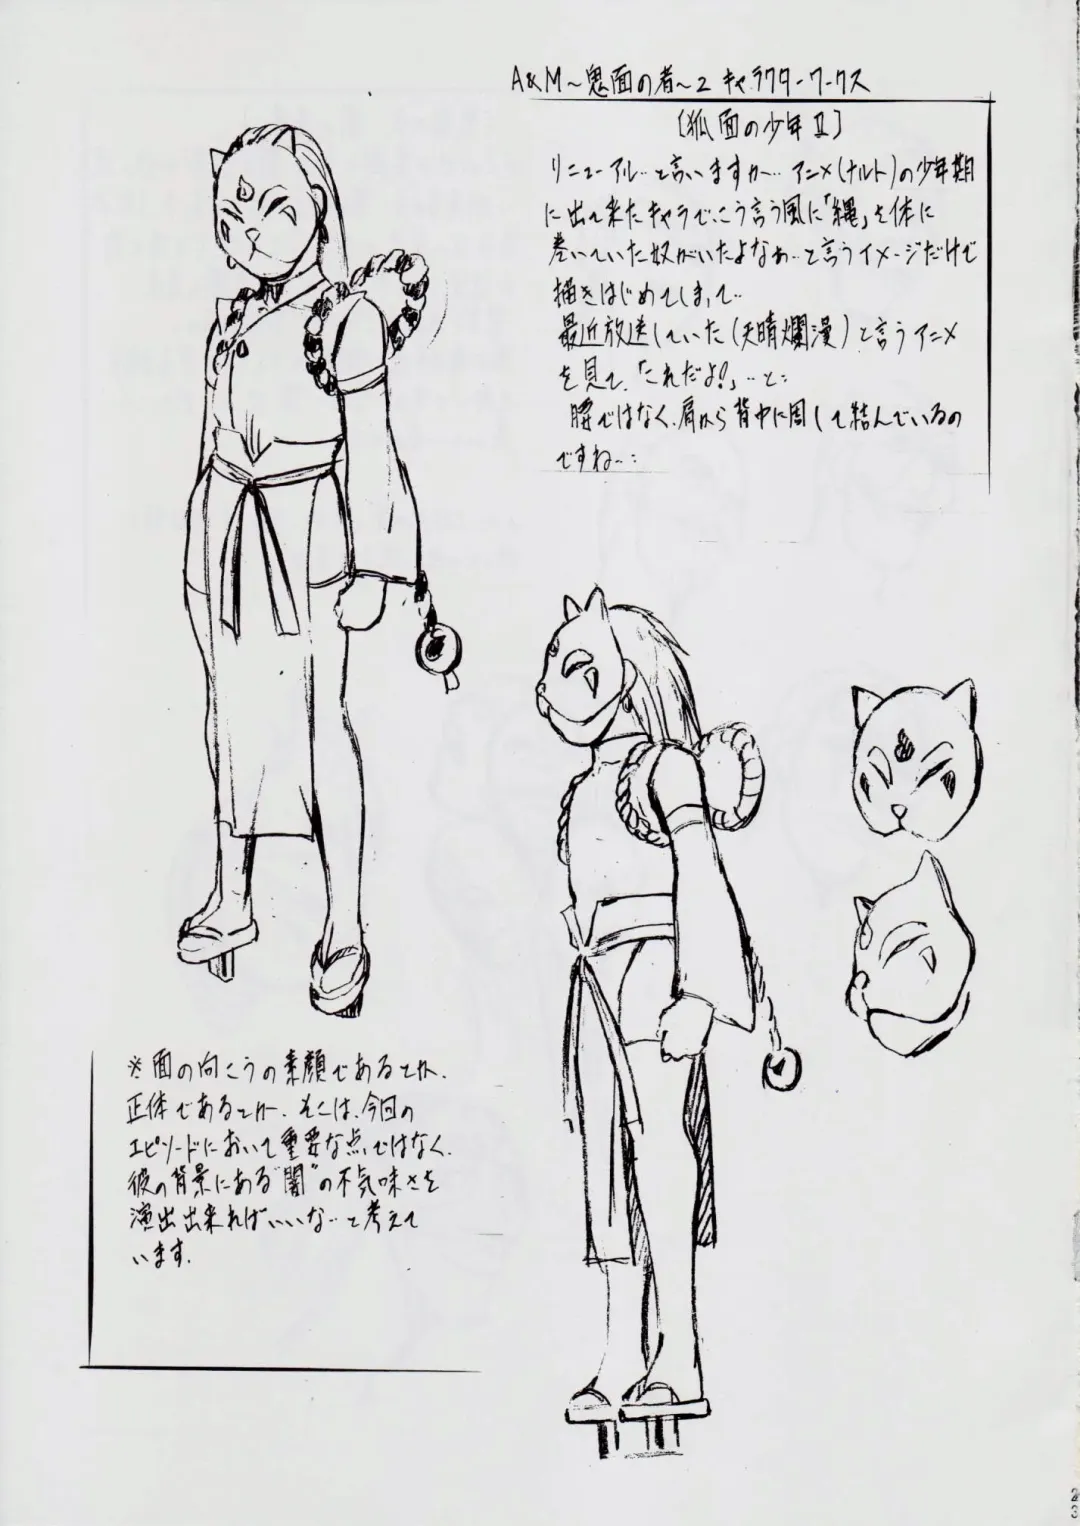 A&M～鬼面の者～2 キャラクターワークス
〔狐面の少年Ⅱ〕
リニューアル‥と言いますか‥アニメ(ナルト)の少年期
に出て来たキャラで、こう言う風に「縄」を体に
巻いていた奴がいたよなぁ‥と言うイメージだけで
描きはじめてしまって‥
最近放送していた(天晴爛漫)と言うアニメ
を見て、「これだよ!」‥と‥
腰ではなく、肩から背中に周して結んでいるの
ですね‥:
※面の向こうの素顔であるとか、
正体であるとか、そこは、今回の
エピソードにおいて重要な点ではなく、
彼の背景にある"闇"の不気味さを
演出出来ればいいな‥と考えて
います。
23